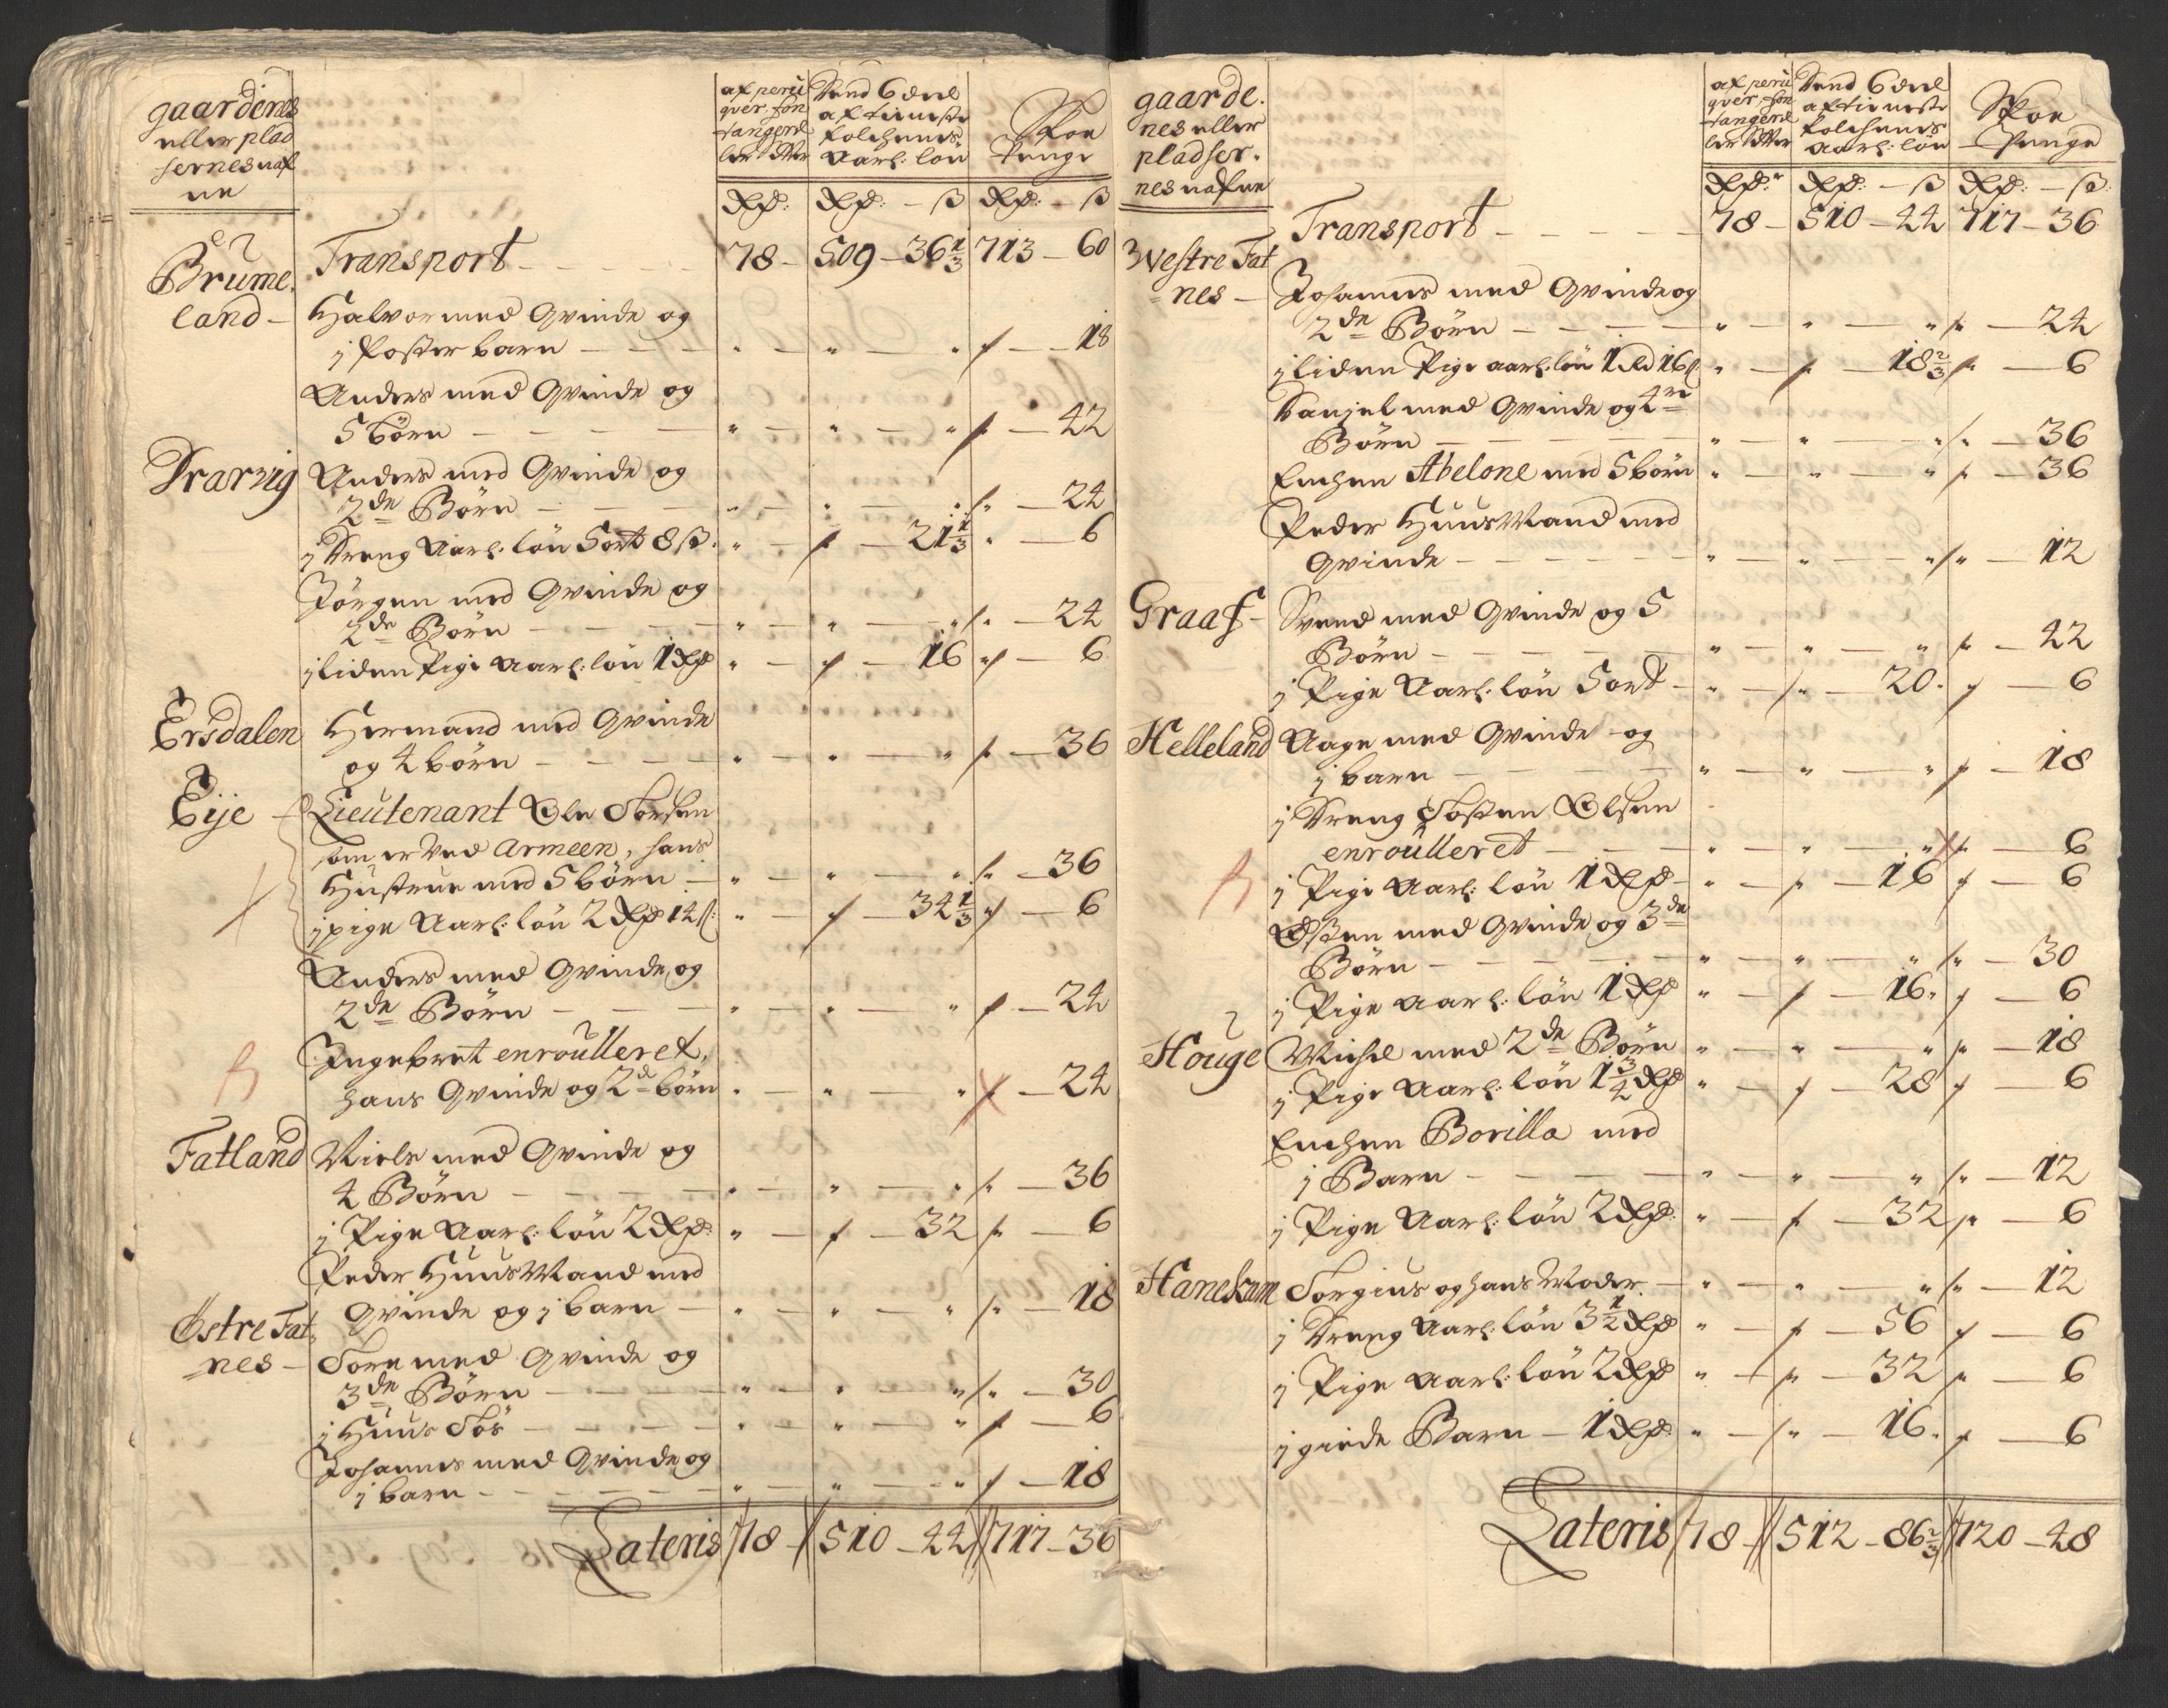 gaardenes
eller plad
sernes naf
ne
af peru
qver, fon
tanger el
ler setter
Hvend 6 deel
af tieneste
folchenes
Aarl: løn
Skoe
Penge
Rdr: Rdr: - ß Rdr: - ß
Transport - 78 - 509 - 36 1/3 713 - 60
Brume
land -
Halvor med Qvinde og
j foster barn - " - " - " - 18
Anders med Qvinde og
5 børn - " - " - " - 42
Drarvig
Anders med Qvinde og
2de Børn - " - " - " - 24
j dreng Aarl: løn 5 ort 8 ß. " - 21 1/3 " - 6
Jørgen med Qvinde og
2de Børn - " - " - " - 24
j liden Pige Aarl: løn 1 Rdr " - 16 - 6
Ersdalen
Hermand med Qvinde
og 4 børn - " - " - " - 36
Eije -
Lieutenant Ole
som er ved Armeen, hans
Hustrue med 5 børn - " - " - " - 36
j pige Aarl: løn 2 Rdr 14 ß: " - 34 1/3 - 6
Anders med Qvinde og
2de Børn - " - " - " - 24
Ingebret enroulleret,
hans Qvinde og 2de børn " - " - " - 24
Fatland
Niels med Qvinde og
4 Børn - " - " - " - 36
j Pige Aarl: løn 2 Rdr: " - 32 - 6
Peder HuusMand med
Qvinde og j barn - " - " - " - 18
Østre Fat
nes -
Tore med Qvinde og
3de Børn - " - " - " - 30
j Huus Tøs - " - " - " - 6
Johannes med Qvinde og
j barn - " - " - " - 18
Lateris 78 - 510 - 44 717 - 36
gaarde.
nes eller
pladser.
nes nafne
af peru
qver, fon
tanger el
ler setter
Hvend 6 deel
af tieneste
folchenes
Aarl: løn
Skoe
Penge
Rdr: Rdr: - ß Rdr: - ß
Transport - 78 - 510 - 44 717 - 36
Westre Fat
nes -
Johannes med Qvinde og
2de Børn - " - " - " - 24
j liden Pige aarl: løn 1 Rd 16 ß " - 18 2/3 - 6
Danjel med Qvinde og 4re
Børn - " - " - " - 36
Enchen Abelone med 5 børn " - " - " - 36
Peder HuusMand med
Qvinde - " - " - " - 12
Graaf -
Svend med Qvinde og 5
Børn - " - " - " - 42
j Pige Aarl: løn 5 ort - " - 20. - 6
Helleland
Aage med Qvinde og
j barn - " - " - " - 18
j dreng Tosten Olsen
enroulleret - " - " - " - 6
j Pige Aarl: løn 1 Rdr - " - 16 - 6
Østen med Qvinde og 3de
Børn - " - " - " - 30
j Pige Aarl: løn 1 Rdr " - 16. - 6
Houge
Michel med 2de Børn " - " - " - 18
j Pige Aarl: løn 1 3/4 Rdr " - 28 - 6
Enchen Borilla med
j Barn - " - " - " - 12
j Pige Aarl: løn 2 Rdr: " - 32 - 6
Hanekam
Torgius og hans Moder. - " - " - " - 12
j dreng Aarl: løn 3 1/2 Rdr " - 56 - 6
j Pige Aarl: løn 2 Rdr " - 32 - 6
j giede Barn - 1 Rdr: " - 16. - 6
Lateris 78 - 512 - 86 2/3 720 - 48